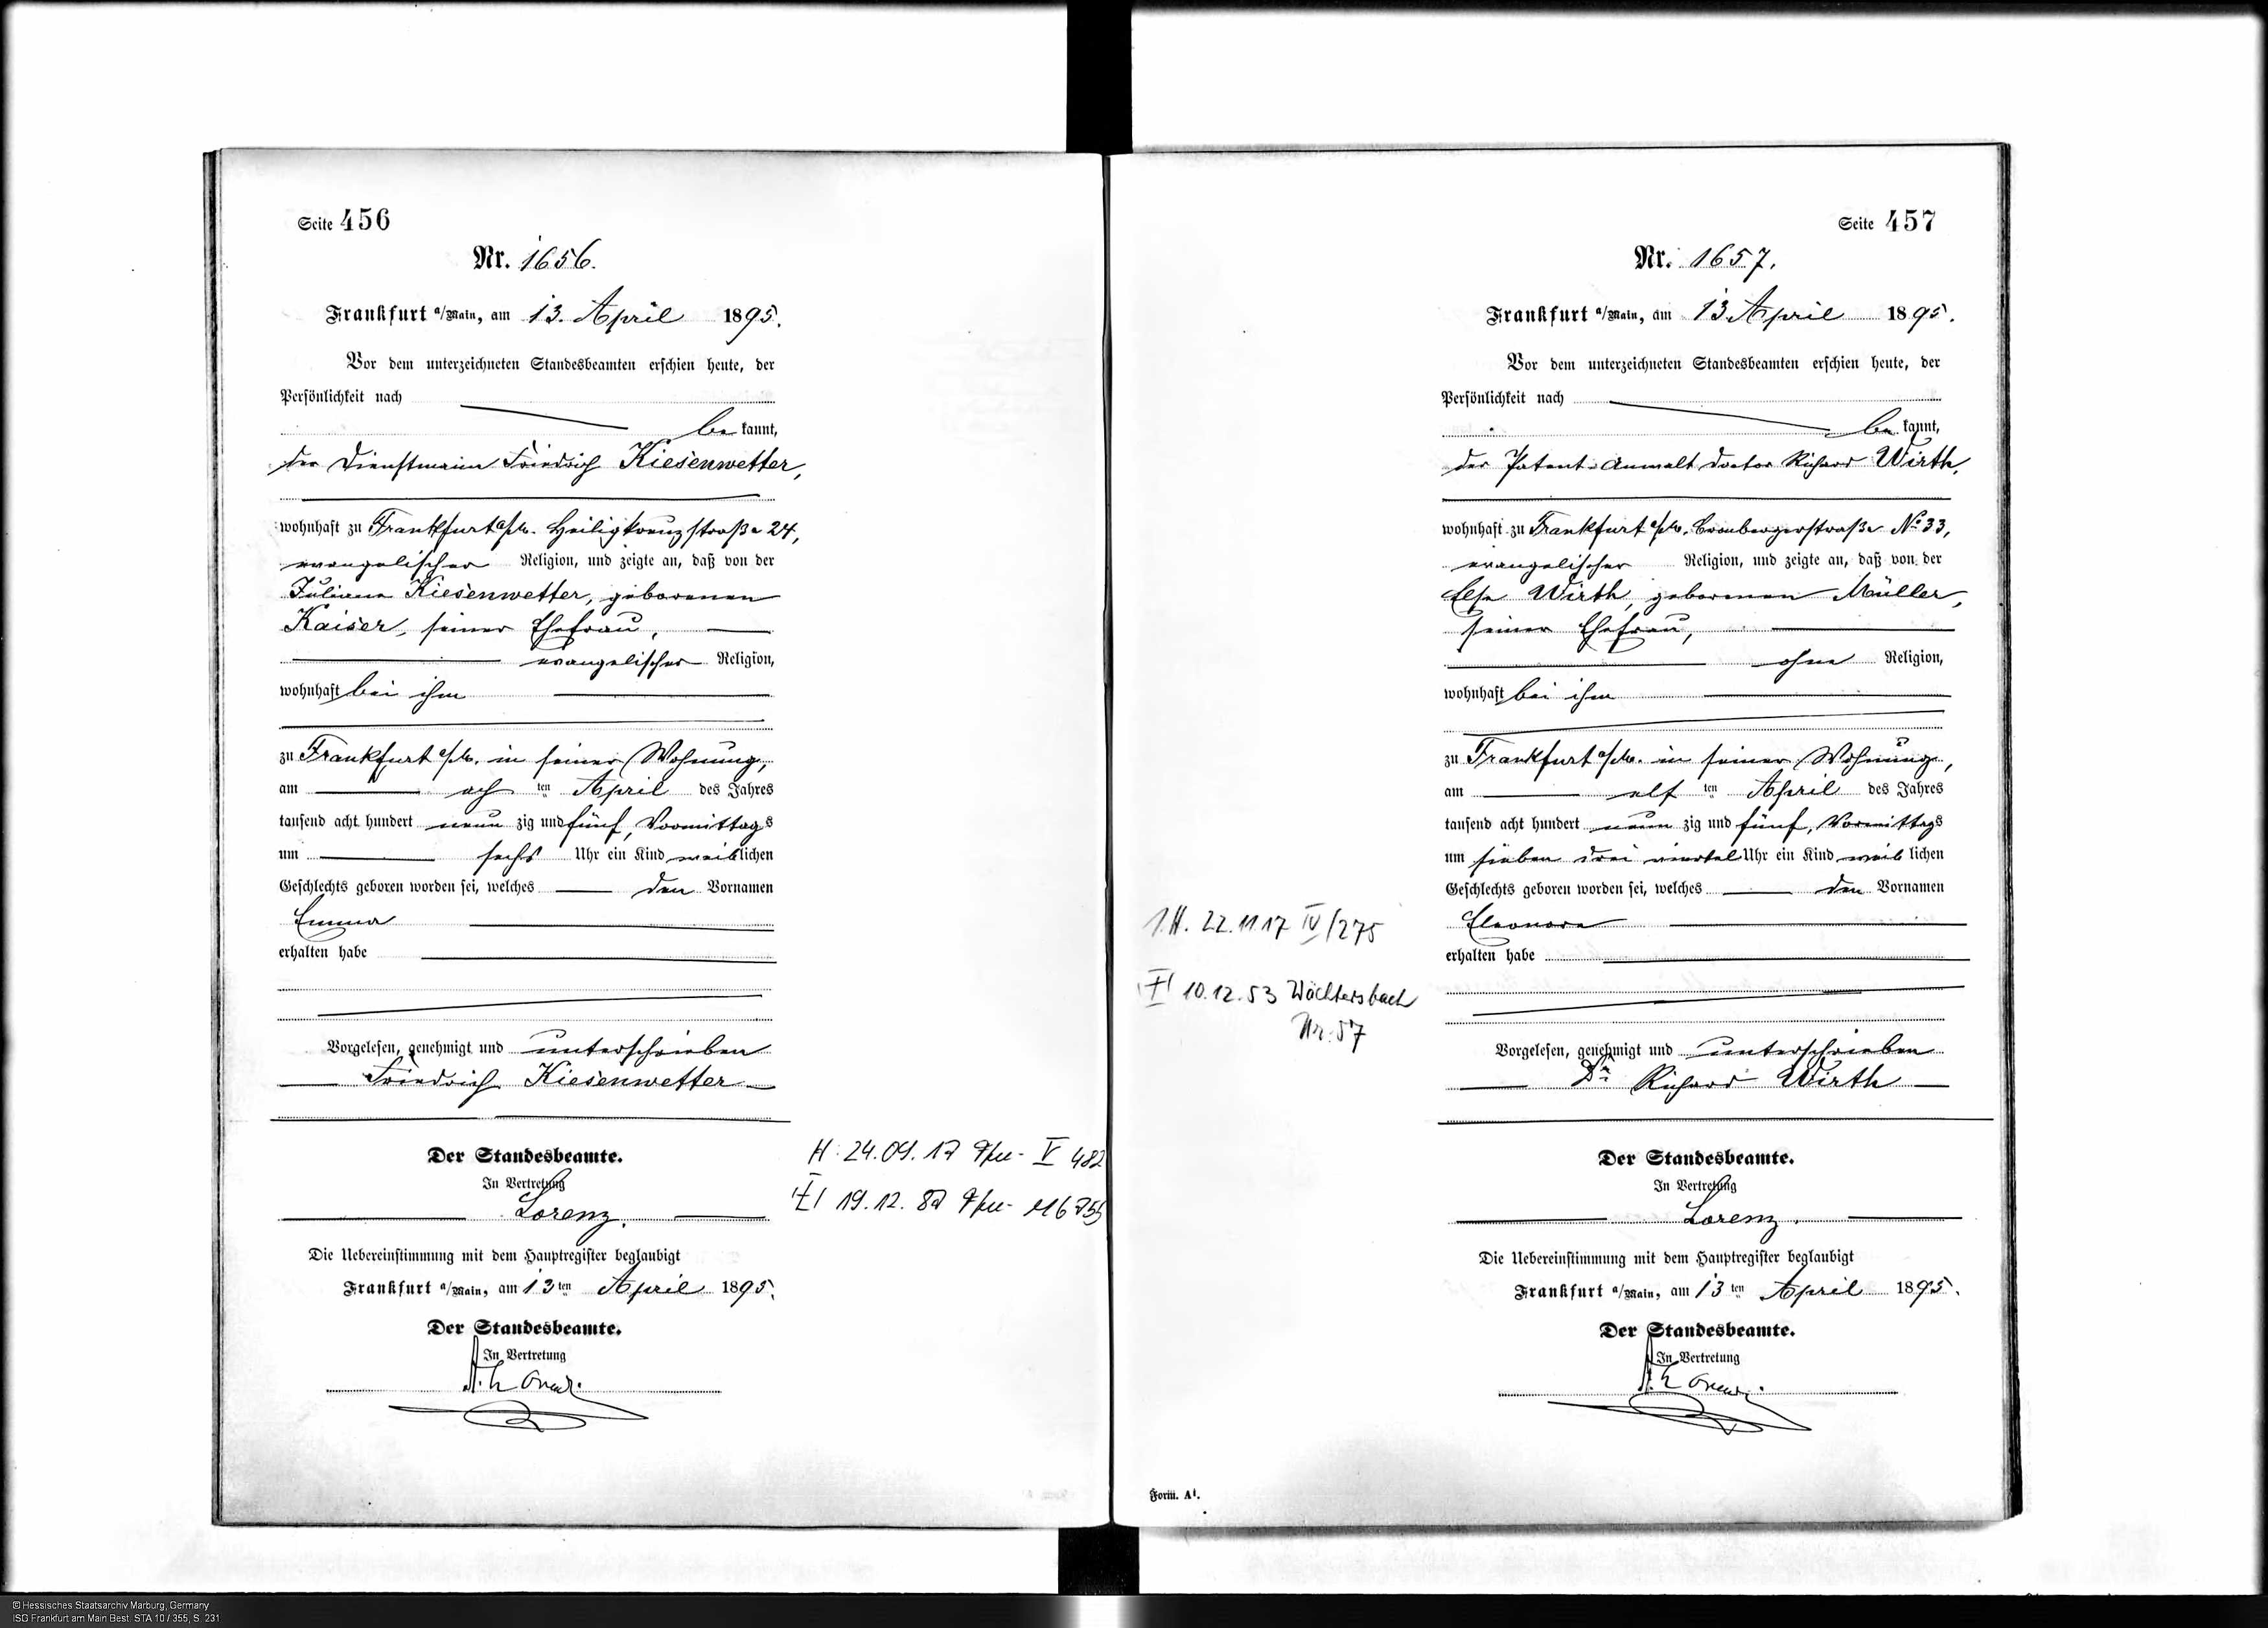 Seite 456
Nr. 1656.
Frankfurt a/Main, am 13. April 1895.
Vor dem unterzeichneten Standesbeamten erschien heute, der
Persönlichkeit nach
be kannt,
der Dienstmann Friedrich Kiesenwetter,
wohnhaft zu Frankfurt a/M. Heiligkreuzstraße 24,
evangelischer Religion, und zeigte an, daß von der
Juliane Kiesenwetter, geborenen
Kaiser, seiner Ehefrau,
evangelischer Religion,
wohnhaft bei ihm
zu Frankfurt a/M. in seiner Wohnung,
am ach ten April des Jahres
tausend acht hundert neun zig und fünf, Vormittags
um sechs Uhr ein Kind weiblichen
Geschlechts geboren worden sei, welches den Vornamen
Emma
erhalten habe
Vorgelesen, genehmigt und unterschrieben
Friedrich Kiesenwetter
Der Standesbeamte.
In Vertretung
Lorenz.
Die Uebereinstimmung mit dem Hauptregister beglaubigt
Frankfurt a/Main, am 13ten April 1895.
Der Standesbeamte.
In Vertretung
H. V 482
19.12.
Seite 457
Nr. 1657.
Frankfurt a/Main, am 13. April 1895.
Vor dem unterzeichneten Standesbeamten erschien heute, der
Persönlichkeit nach
be kannt,
der Patent-Anwalt Doctor Richard Wirth,
wohnhaft zu Frankfurt a/M. Cronbergerstraße No 33,
evangelischer Religion, und zeigte an, daß von der
Else Wirth, geborenen Müller,
seiner Ehefrau,
ohne Religion,
wohnhaft bei ihm
zu Frankfurt a/M. in seiner Wohnung,
am elf ten April des Jahres
tausend acht hundert neun zig und fünf, Vormittags
um sieben drei viertel Uhr ein Kind weib lichen
Geschlechts geboren worden sei, welches den Vornamen
Eleonore
erhalten habe
Vorgelesen, genehmigt und unterschrieben
Dr. Richard Wirth
Der Standesbeamte.
In Vertretung
Lorenz.
Die Uebereinstimmung mit dem Hauptregister beglaubigt
Frankfurt a/Main, am 13ten April 1895.
Der Standesbeamte.
In Vertretung
1.H. 22.11.17 IV/275
10.12.53 Wächtersbach
Nr. 57
Form. A1.
© Hessisches Staatsarchiv Marburg, Germany
ISG Frankfurt am Main Best. STA 10 / 355, S. 231